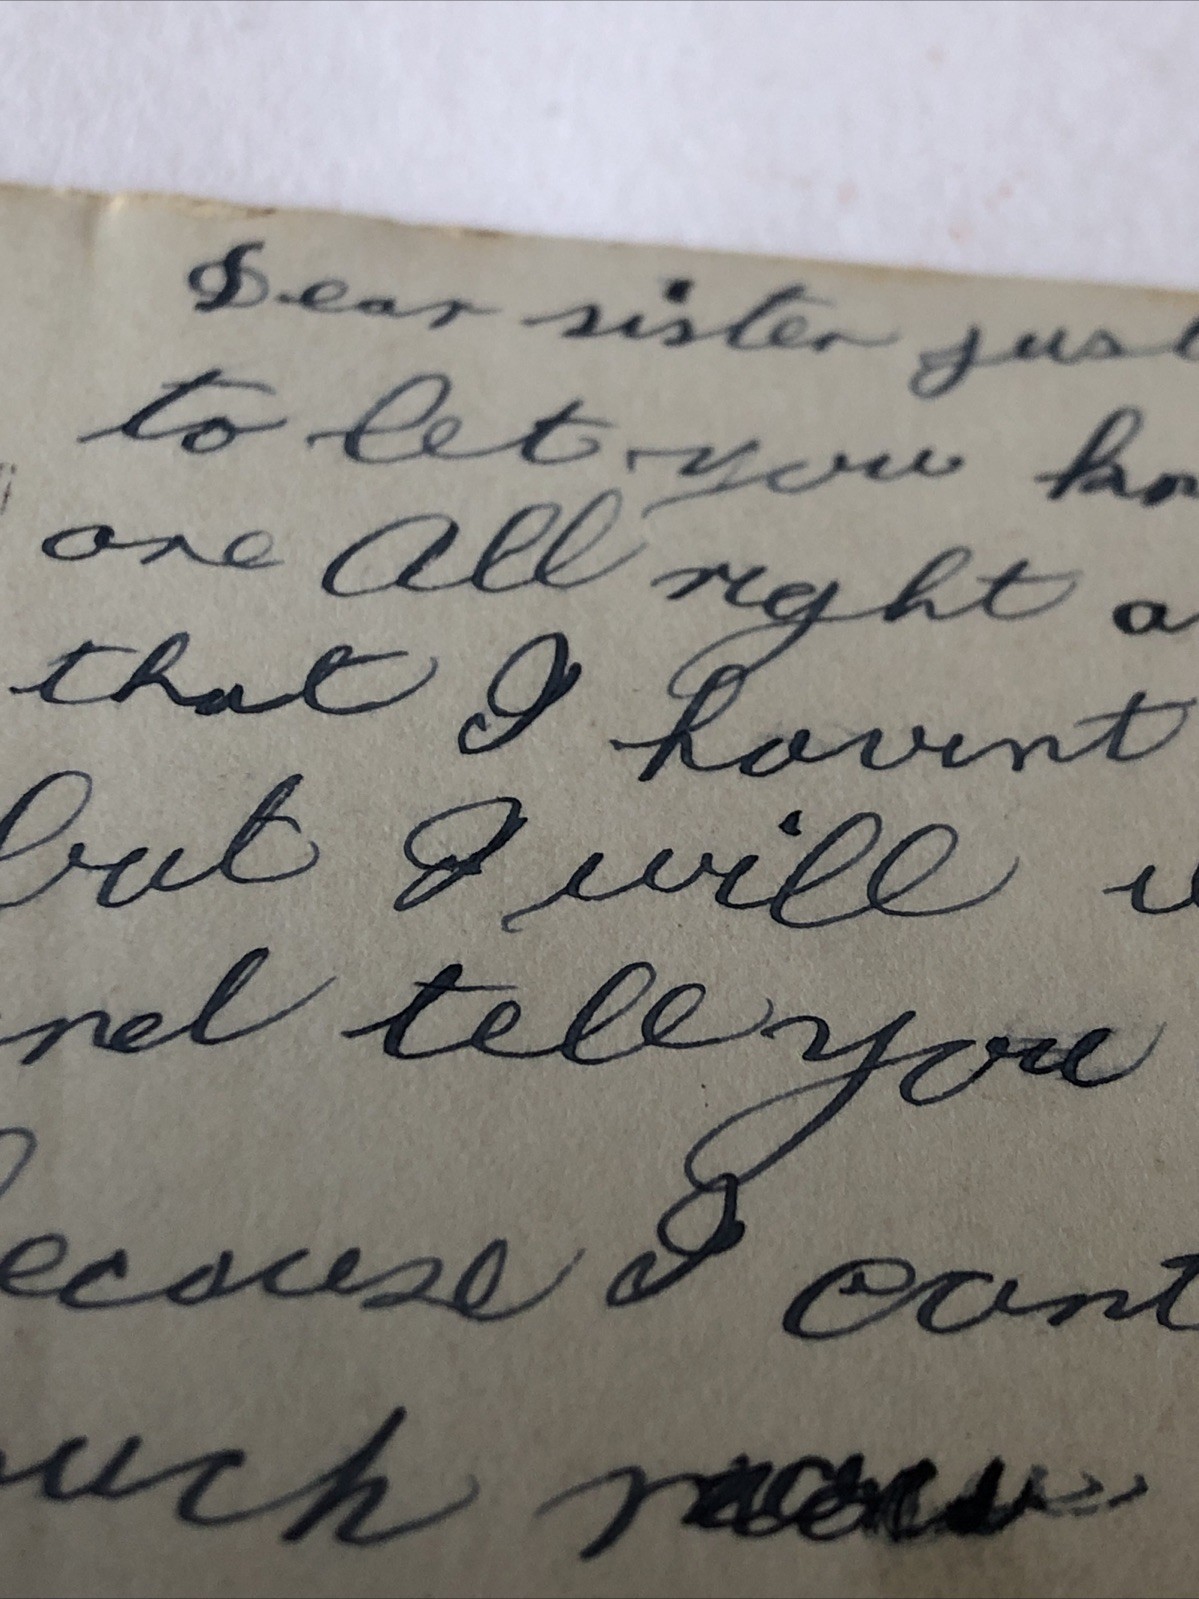 Dear sister just
to let you kno
are All right a
that I havint
but I will w
nd tell you
ecause I cant
uch now